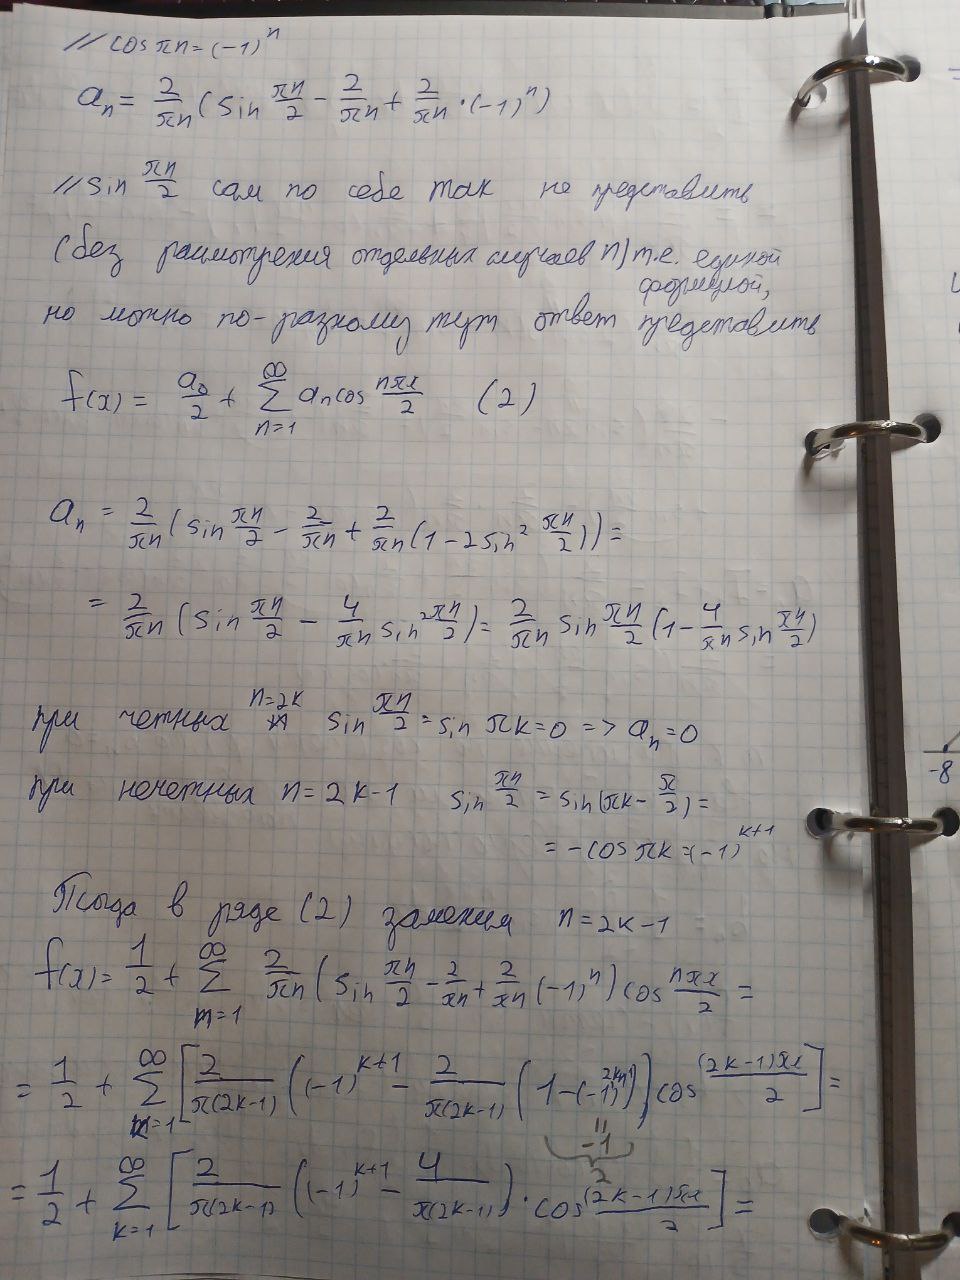 // cos πn = (-1)^n
a_n = 2/πn (sin πn/2 - 2/πn + 2/πn · (-1)^n)
// sin πn/2 сам по себе так не представить
(без рассмотрения отдельных случаев n) т.е. единой
формулой,
но можно по-разному тут ответ представить
f(x) = a_0/2 + ∑_{n=1}^{∞} a_n cos nπx/2 (2)
a_n = 2/πn (sin πn/2 - 2/πn + 2/πn (1 - 2 sin² πn/2)) =
= 2/πn (sin πn/2 - 4/πn sin² πn/2) = 2/πn sin πn/2 (1 - 4/πn sin πn/2)
при четных n=2k sin πn/2 = sin πk = 0 => a_n = 0
при нечетных n = 2k-1 sin πn/2 = sin(πk - π/2) =
= -cos πk = (-1)^{k+1}
Тогда в ряде (2) заменим n = 2k-1
f(x) = 1/2 + ∑_{n=1}^{∞} 2/πn (sin πn/2 - 2/πn + 2/πn (-1)^n) cos nπx/2 =
= 1/2 + ∑_{k=1}^{∞} [2/π(2k-1) ((-1)^{k+1} - 2/π(2k-1) (1 - (-1)^{2k-1})) cos (2k-1)πx/2] =
= -1
2
= 1/2 + ∑_{k=1}^{∞} [2/π(2k-1) ((-1)^{k+1} - 4/π(2k-1)) · cos (2k-1)πx/2] =
-8